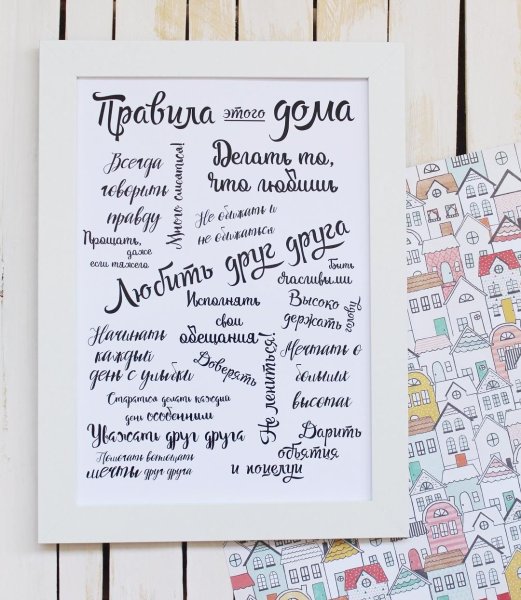 Правила этого дома
Всегда
говорить
правду
Много смеяться!
Делать то,
что любишь
Не обижать и
не обижаться
Прощать,
даже
если тяжело
Любить друг друга
Быть
счасливыми
Исполнять
свои
обещания
Высоко
держать
голову
Начинать
каждый
день с улыбки
Доверять
Не лениться!
Мечтать о
больших
высотах
Стараться делать каждый
день особенным
Уважать друг друга
Помогать воплощать
мечты друг друга
Дарить
объятия
и поцелуи